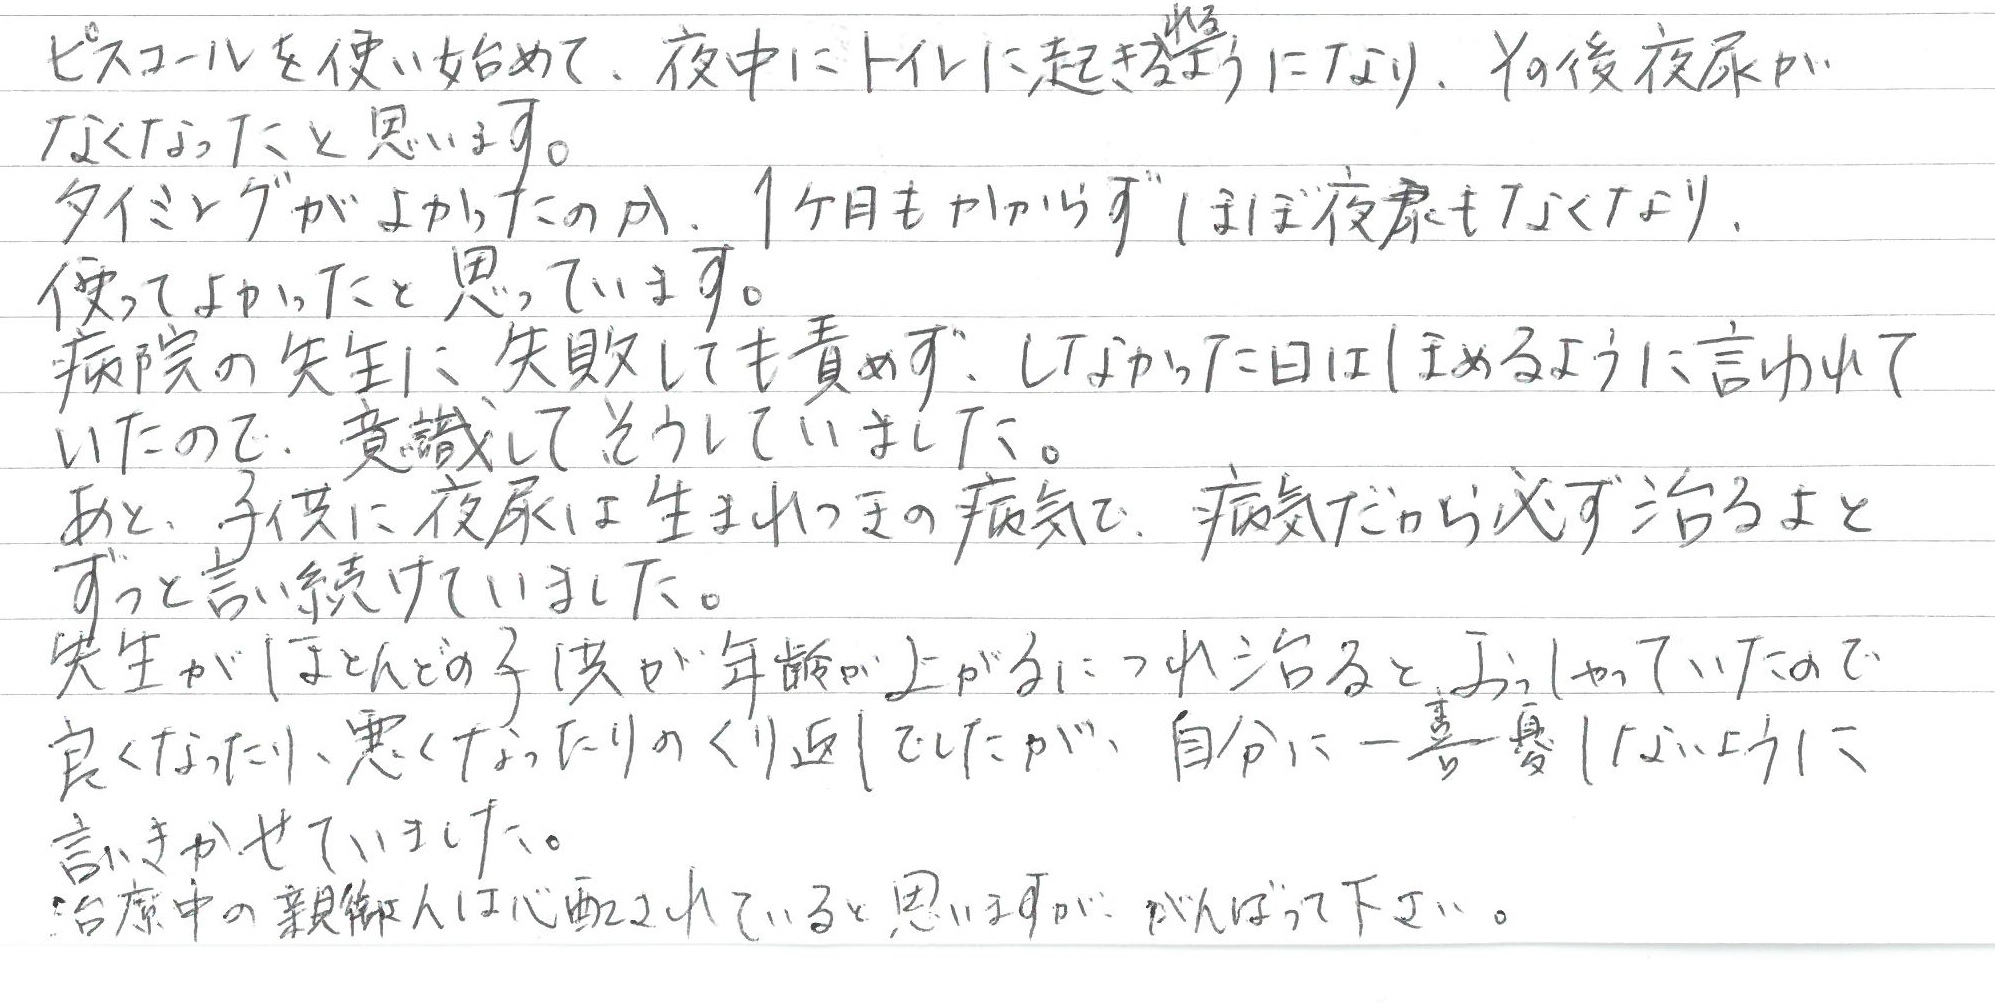 ピスコールを使い始めて、夜中にトイレに起きれるようになり、その後夜尿が
なくなったと思います。
タイミングがよかったのか、1ケ月もかからずほぼ夜尿もなくなり、
使ってよかったと思っています。
病院の先生に失敗しても責めず、しなかった日はほめるように言われて
いたので、意識してそうしていました。
あと、子供に夜尿は生まれつきの病気で、病気だから必ず治るよと
ずっと言い続けていました。
先生がほとんどの子供が年齢が上がるにつれ治ると、おっしゃっていたので
良くなったり、悪くなったりのくり返しでしたが、自分に一喜一憂しないように
言いきかせていました。
治療中の親御さんは心配されていると思いますが、がんばって下さい。